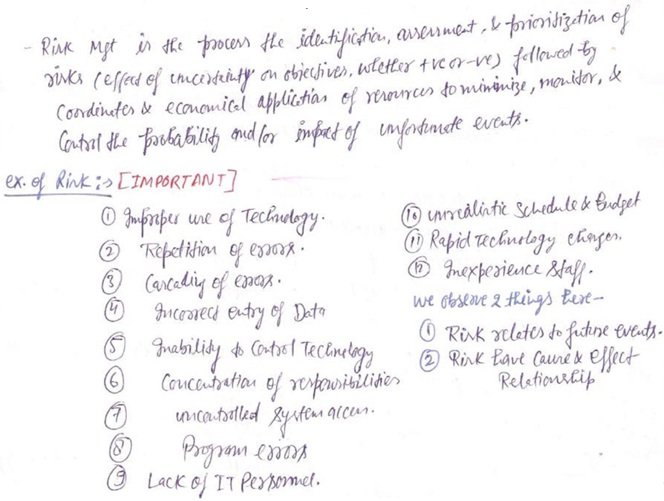 - Risk Mgt is the process the identification, assessment, & prioritization of
risks (effect of uncertainty on objectives, whether +ve or -ve) followed by
Coordinates & economical application of resources to minimize, monitor, &
Control the probability and/or impact of unfortunate events.
ex. of Risk :-> [IMPORTANT]
① Improper use of Technology.
② Repetition of errors.
③ Cascading of errors.
④ Incorrect entry of Data
⑤ Inability to Control Technology
⑥ Concentration of responsibilities
⑦ uncontrolled System access.
⑧ Program errors
⑨ Lack of IT Personnel.
⑩ unrealistic Schedule & Budget
⑪ Rapid Technology changes.
⑫ Inexperience Staff.
we observe 2 things here-
① Risk relates to future events.
② Risk have Cause & effect
Relationship